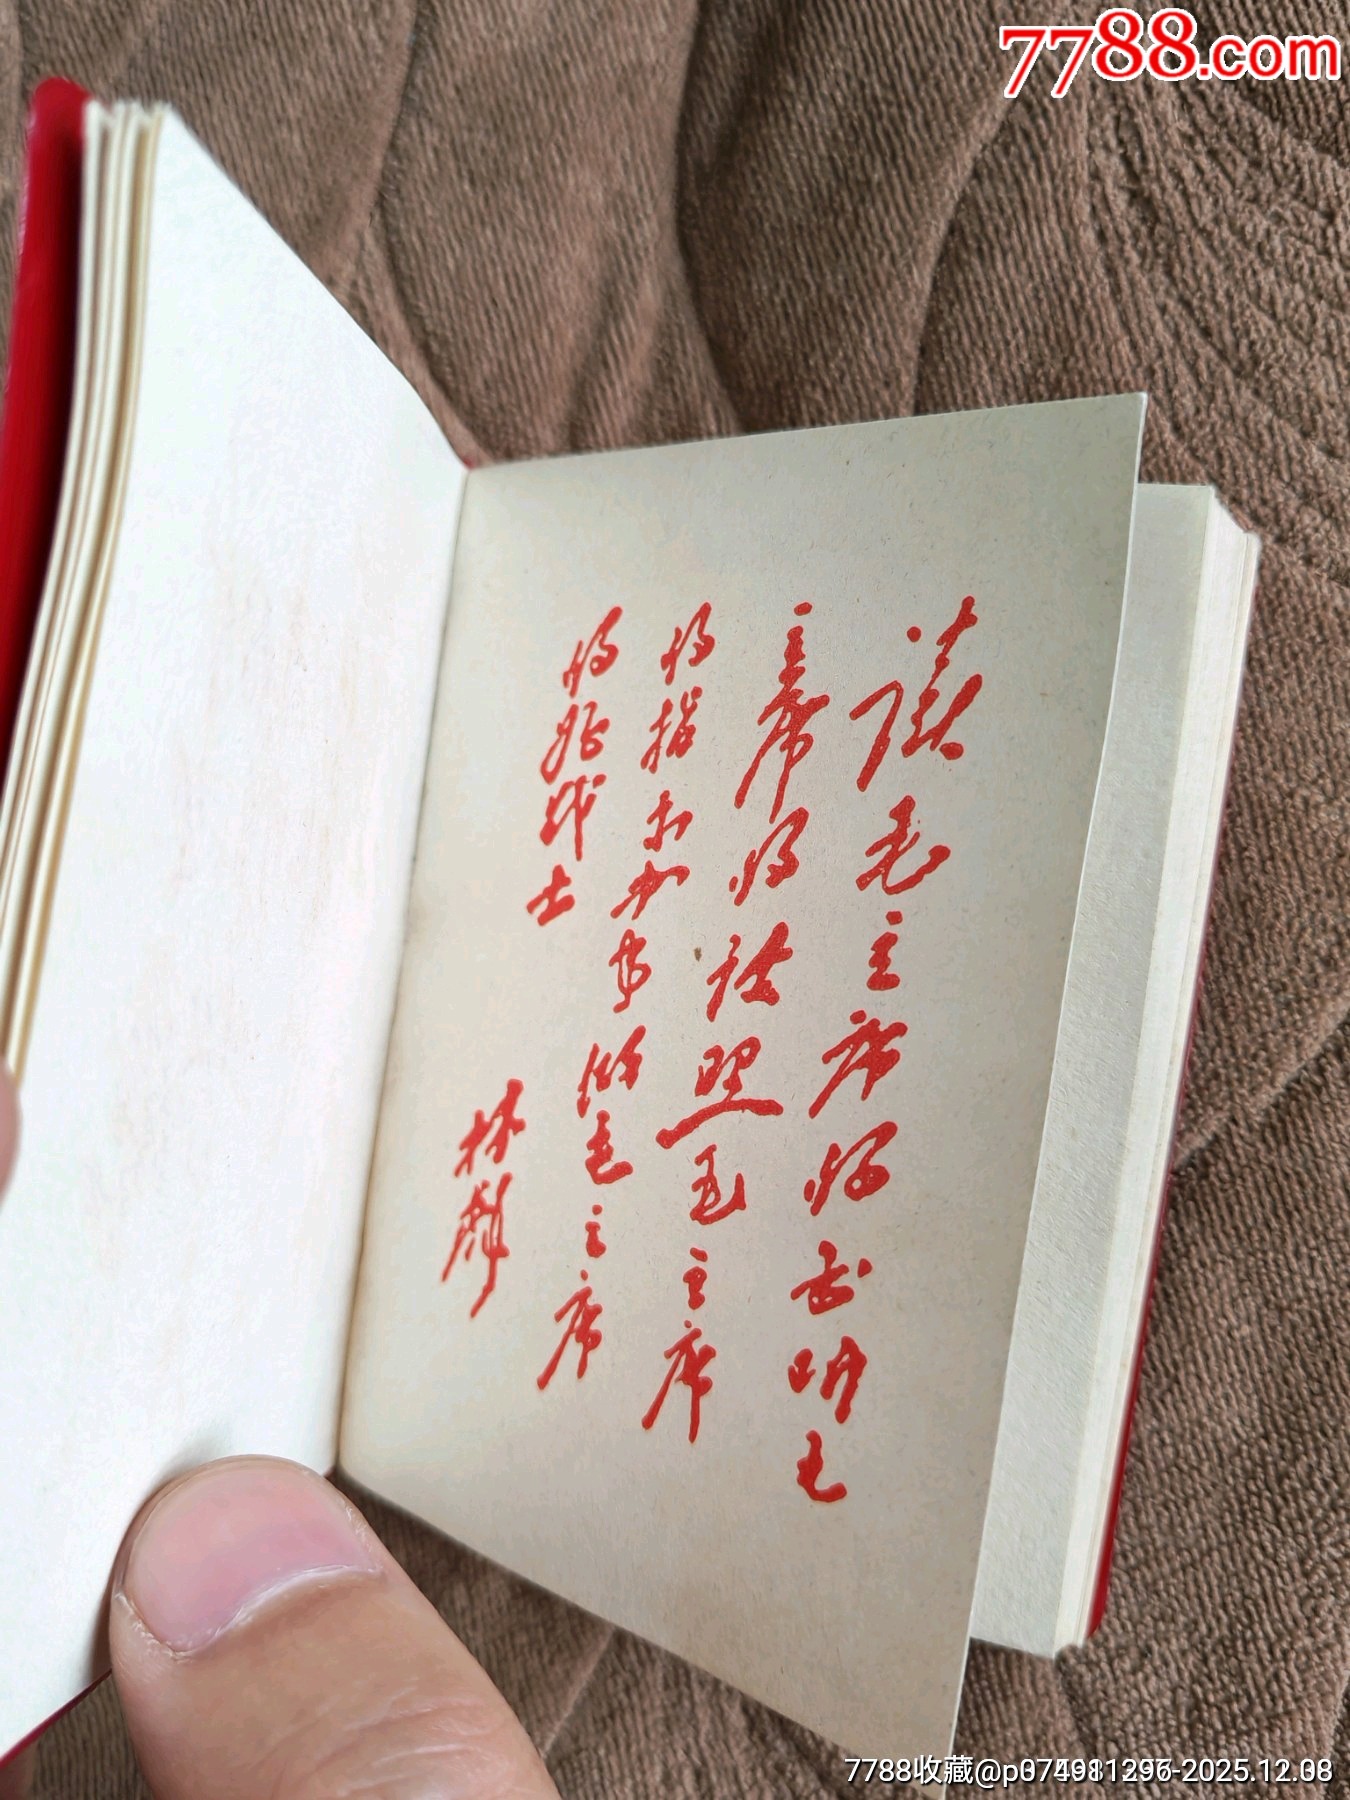 7788.com
读毛主席的书听毛
主席的话照毛主席
的指示办事做毛主席
的好战士
林彪
7788收藏
2025.12.08